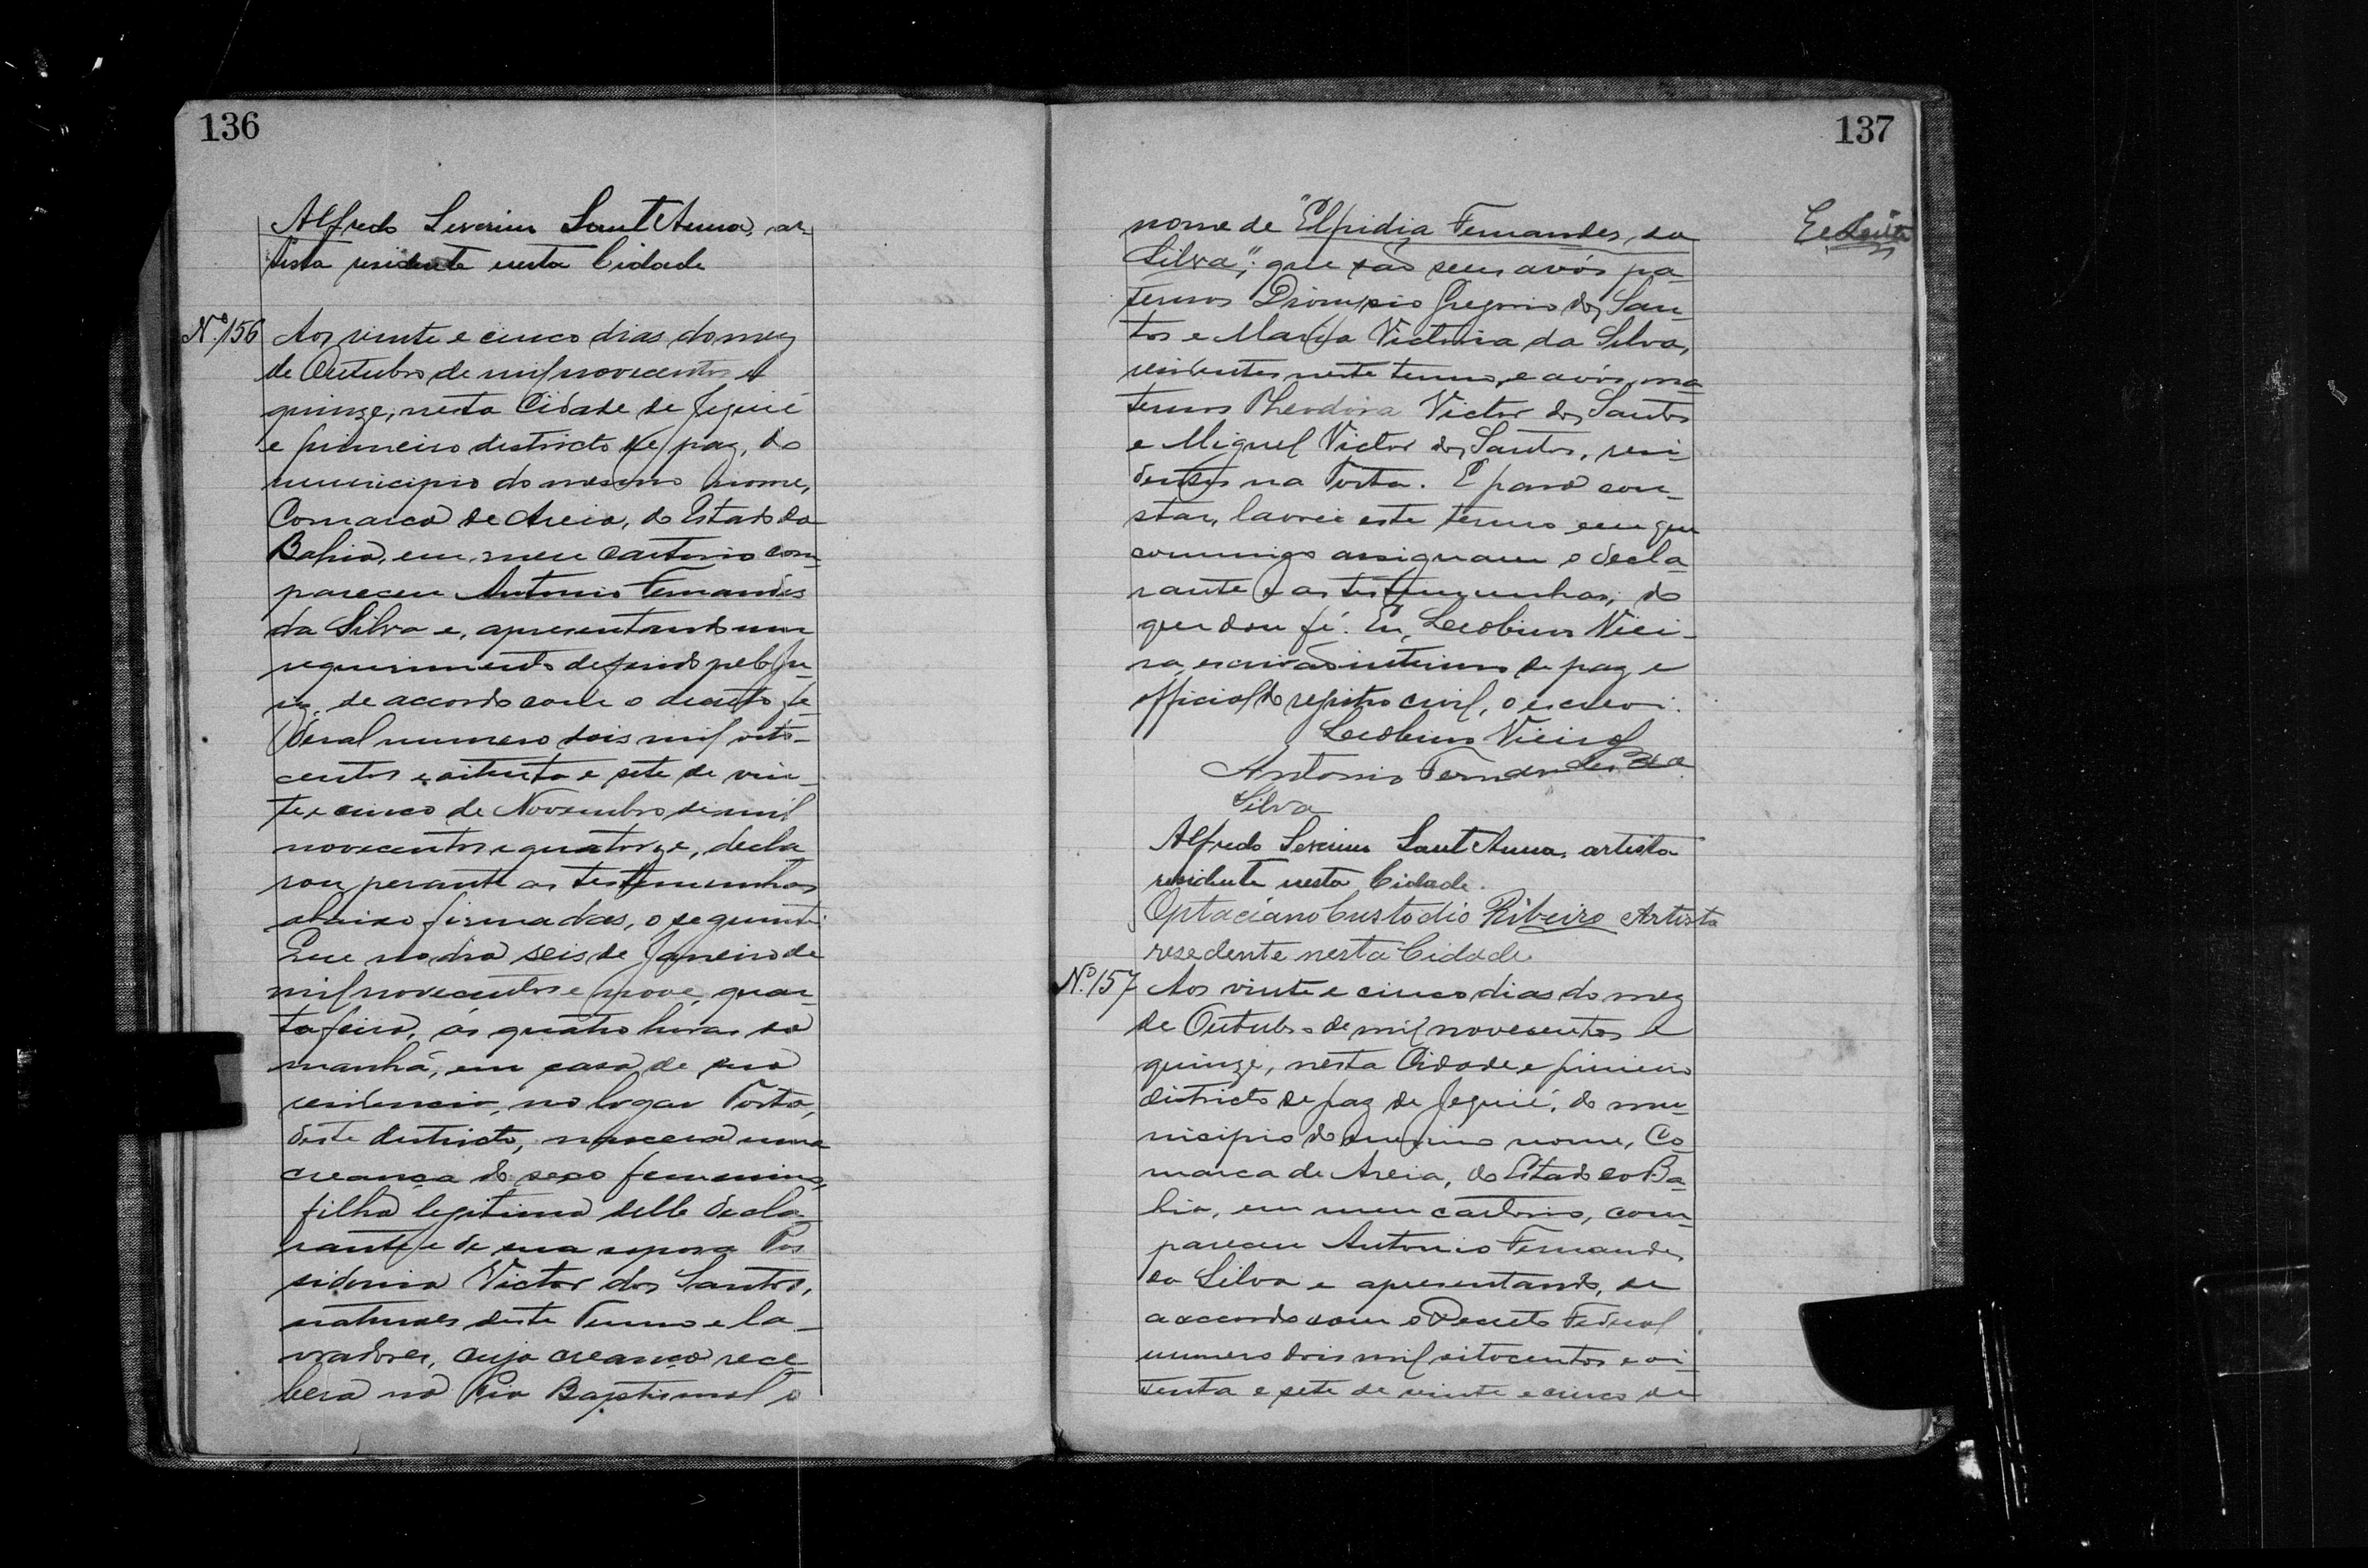 136
Alfredo Severino Sant'Anna, ar-
tista residente nesta Cidade
Nº 156 Aos vinte e cinco dias do mez
de Outubro de mil novecentos e
quinze, nesta Cidade de Jequié
e primeiro districto de paz, do
municipio do mesmo nome,
Comarca de Areia, do Estado da
Bahia, em meu cartorio com-
pareceu Antonio Fernandes
da Silva e, apresentando um
requerimento deferido pelo Ju-
iz, de accordo com o decreto fe-
deral numero dois mil oito-
centos e oitenta e sete de vin-
te e cinco de Novembro de mil
novecentos e quatorze, decla-
rou perante as testemunhas
abaixo firmadas, o seguinte:
Que no dia seis de Janeiro de
mil novecentos e nove, quar-
ta feira, ás quatro horas da
manhã, em casa de sua
residencia, no logar Torta,
deste districto, nascera uma
creança do sexo femenino,
filha legitima delle decla-
rante e de sua esposa Pos
sidonia Victor dos Santos,
naturaes deste Termo e la-
vradores, cuja creança rece-
bera na Pia Baptismal o
137
nome de "Elpidia Fernandes da
Silva"; que são seus avós pa-
ternos Dionysio Gregorio dos San-
tos e Maria Victoria da Silva,
residentes neste termo, e avós ma-
ternos Theodora Victor dos Santos
e Miguel Victor dos Santos, resi-
dentes na Torta. E para con-
star, lavrei este termo em que
commigo assignam o decla-
rante e as testemunhas; do
que dou fé. Eu, Leobino Viei-
ra, escrivão interino de paz e
official do registro civil, o escrevi.
Leobino Vieira
Antonio Fernandes da
Silva
Alfredo Severino Sant'Anna, artista
residente nesta Cidade.
Optaciano Custodio Ribeiro Artista
resedente nesta Cidade
Nº 157 Aos vinte e cinco dias do mez
de Outubro de mil novecentos e
quinze, nesta Cidade e primeiro
districto de paz de Jequié, do mu-
nicipio do mesmo nome, Co-
marca de Areia, do Estado da Ba-
hia, em meu cartorio, com-
pareceu Antonio Fernandes
da Silva e apresentando, de
accordo com o Decreto Federal
numero dois mil oitocentos e oi-
tenta e sete de vinte e cinco de